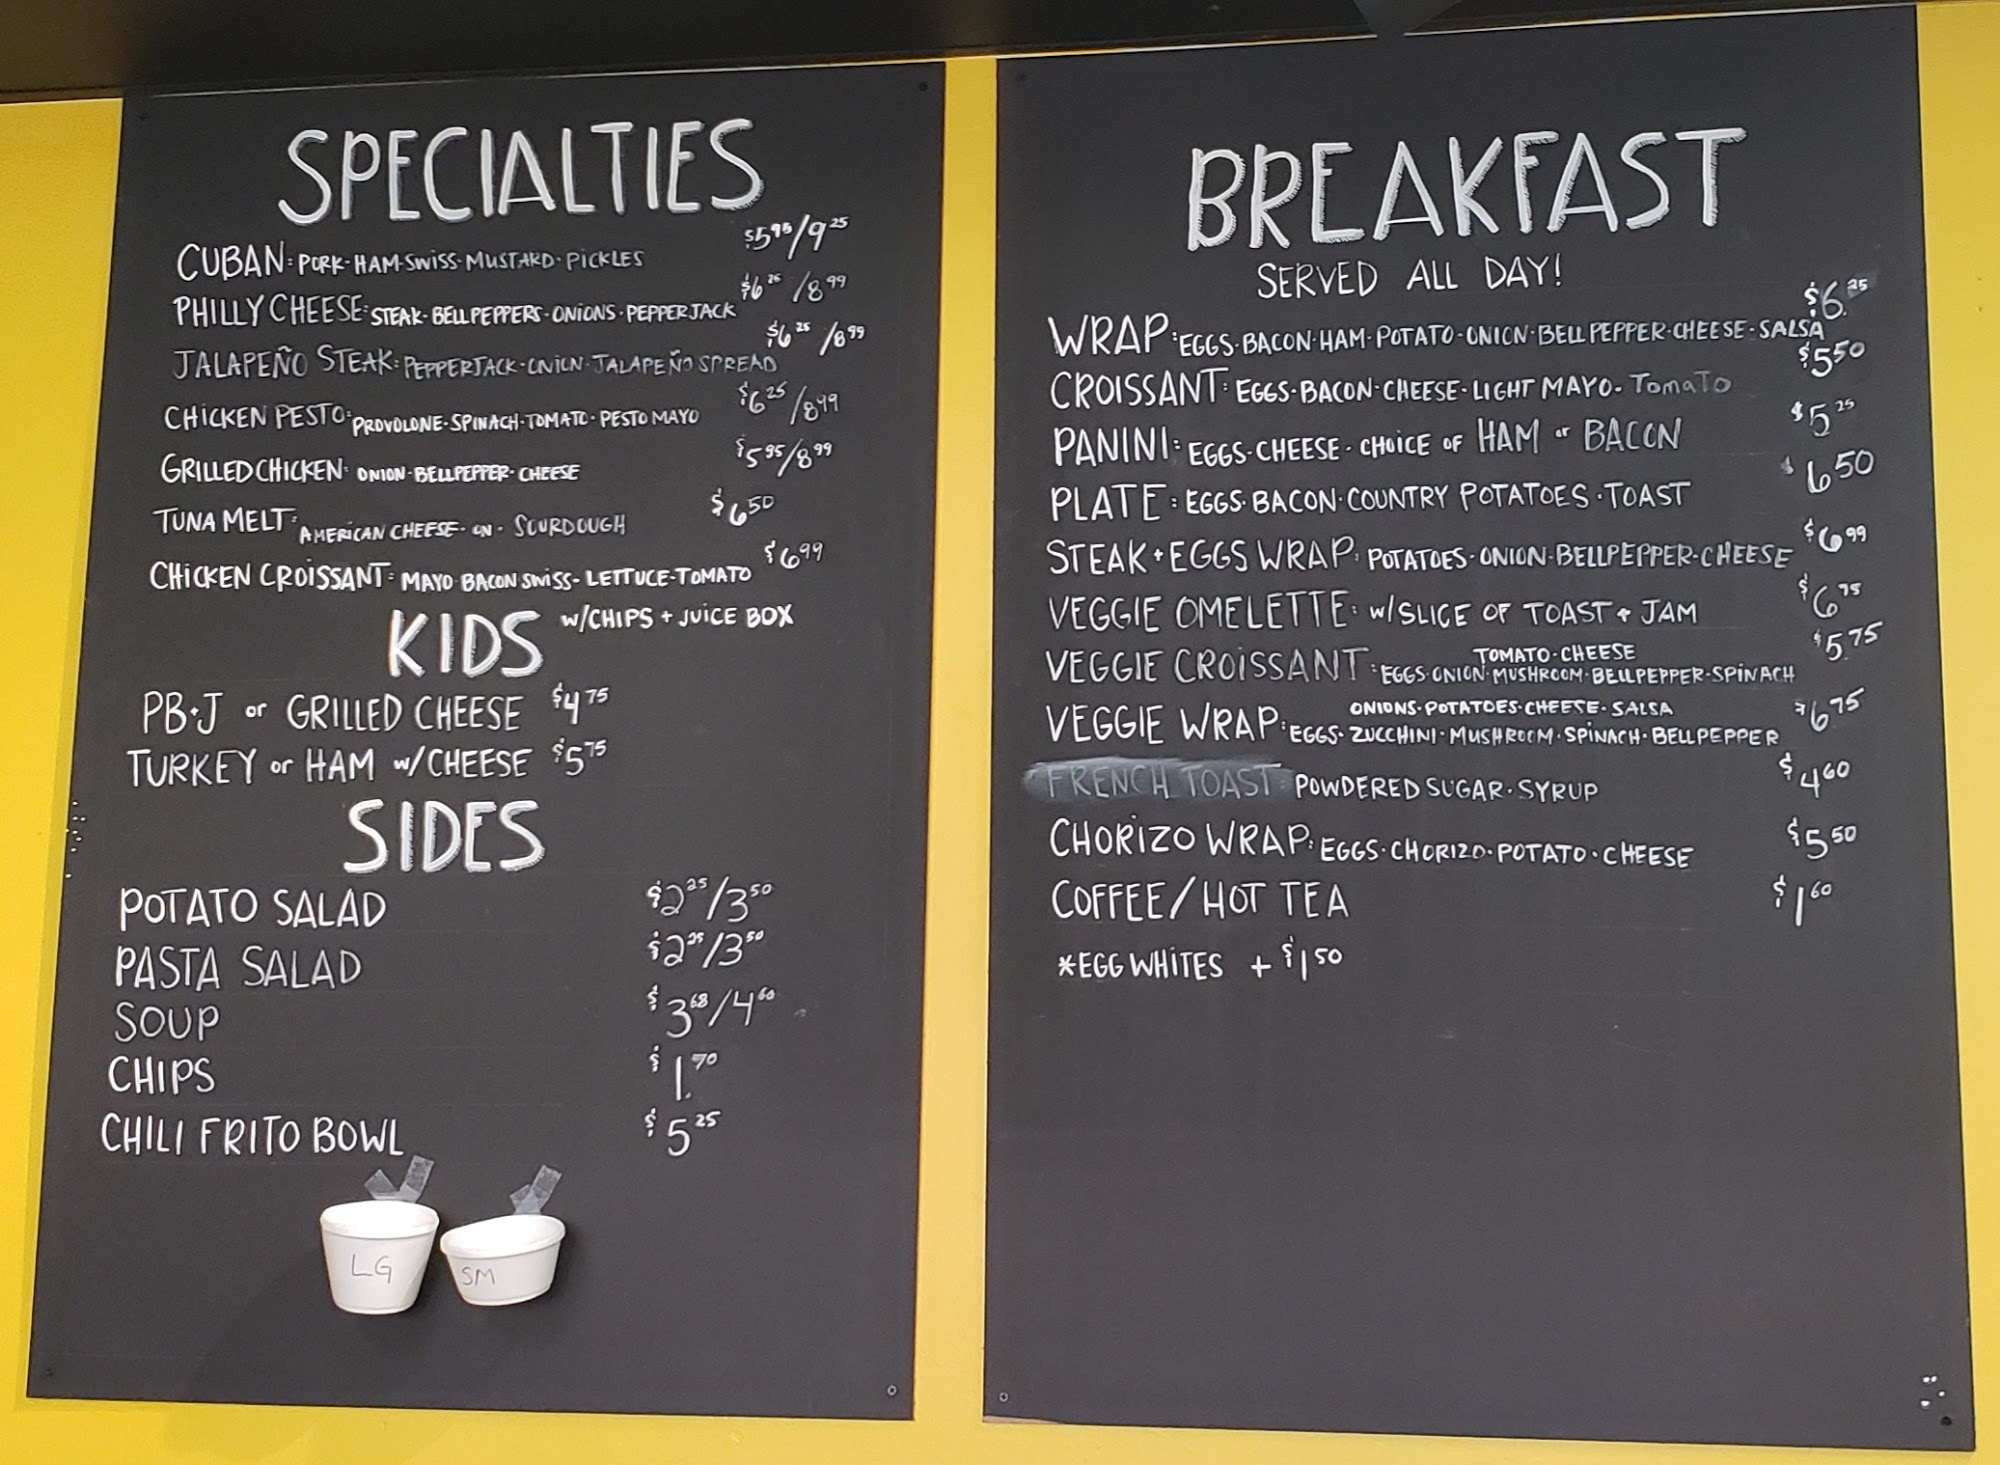 SPECIALTIES
CUBAN: PORK·HAM·SWISS·MUSTARD·PICKLES $5.95/9.25
PHILLY CHEESE: STEAK·BELL PEPPERS·ONIONS·PEPPERJACK $6.25/8.99
JALAPEÑO STEAK: PEPPERJACK·ONION·JALAPEÑO SPREAD $6.25/8.99
CHICKEN PESTO: PROVOLONE·SPINACH·TOMATO·PESTO MAYO $6.25/8.99
GRILLED CHICKEN: ONION·BELLPEPPER·CHEESE $5.95/8.99
TUNA MELT: AMERICAN CHEESE·ON·SOURDOUGH $6.50
CHICKEN CROISSANT: MAYO BACON SWISS-LETTUCE-TOMATO $6.99
KIDS W/CHIPS + JUICE BOX
PB+J or GRILLED CHEESE $4.75
TURKEY or HAM W/CHEESE $5.75
SIDES
POTATO SALAD $2.25/3.50
PASTA SALAD $2.25/3.50
SOUP $3.68/4.60
CHIPS $1.70
CHILI FRITO BOWL $5.25
LG SM
BREAKFAST
SERVED ALL DAY!
WRAP: EGGS·BACON·HAM·POTATO·ONION·BELL PEPPER·CHEESE·SALSA $6.25
CROISSANT: EGGS·BACON·CHEESE·LIGHT MAYO·TOMATO $5.50
PANINI: EGGS·CHEESE·CHOICE OF HAM or BACON $5.25
PLATE: EGGS·BACON·COUNTRY POTATOES·TOAST $6.50
STEAK + EGGS WRAP: POTATOES·ONION·BELLPEPPER·CHEESE $6.99
VEGGIE OMELETTE: W/SLICE OF TOAST + JAM $6.75
VEGGIE CROISSANT: TOMATO·CHEESE $5.75
EGGS·ONION·MUSHROOM·BELLPEPPER·SPINACH
VEGGIE WRAP: ONIONS·POTATOES·CHEESE·SALSA $6.75
EGGS·ZUCCHINI·MUSHROOM·SPINACH·BELLPEPPER
FRENCH TOAST: POWDERED SUGAR·SYRUP $4.60
CHORIZO WRAP: EGGS·CHORIZO·POTATO·CHEESE $5.50
COFFEE/HOT TEA $1.60
*EGG WHITES + $1.50